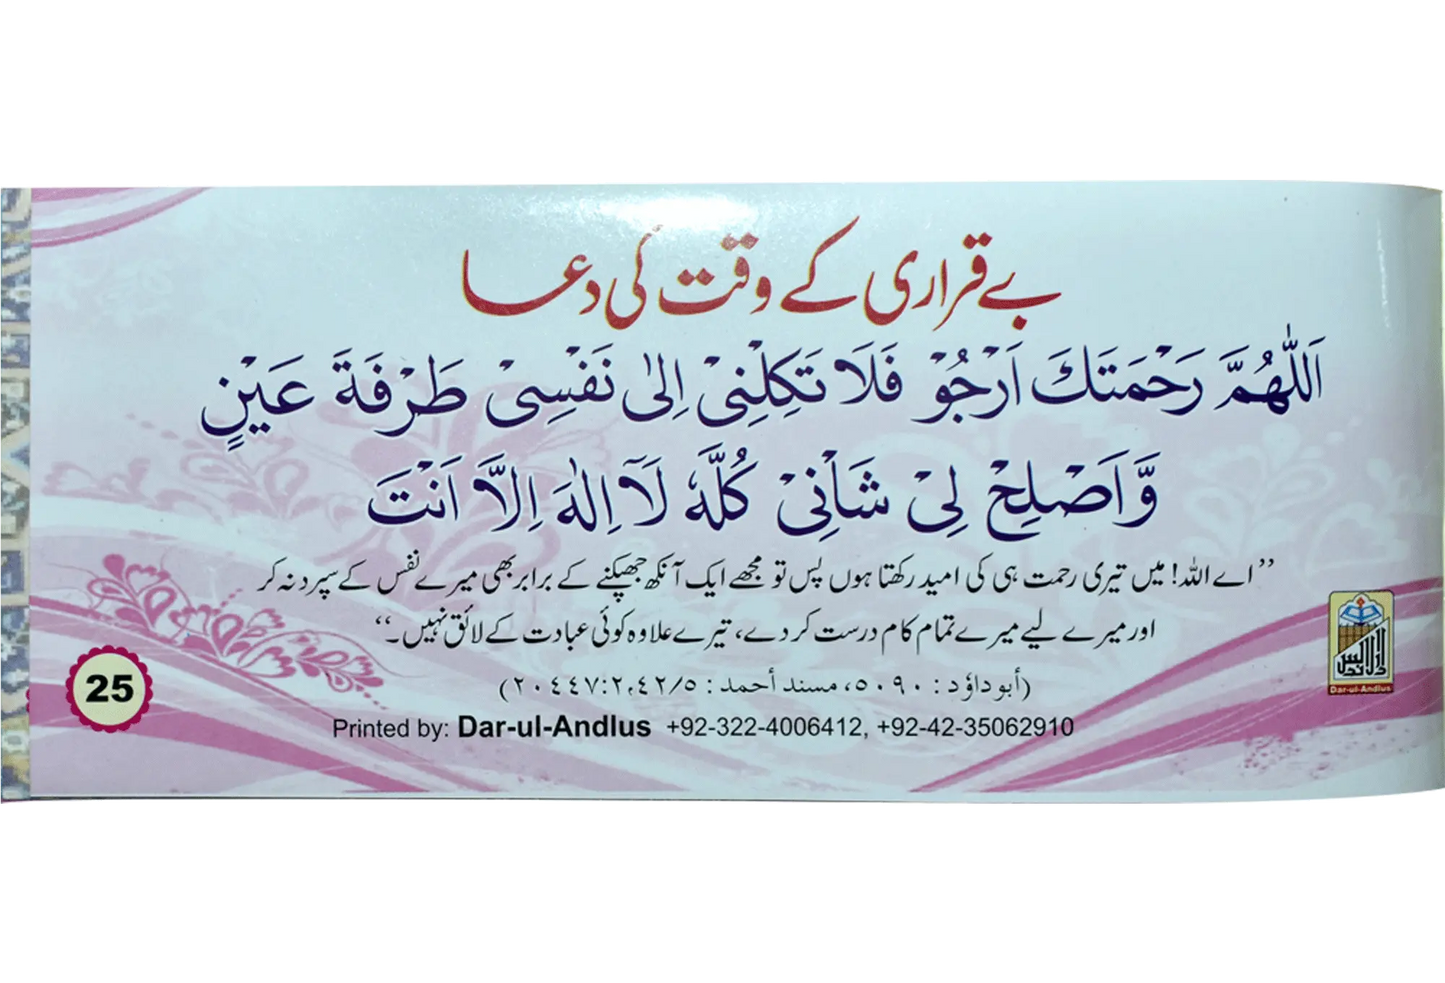 بے قراری کے وقت کی دعا
اَللّٰهُمَّ رَحْمَتَكَ اَرْجُوْ فَلَا تَكِلْنِیْ اِلٰی نَفْسِیْ طَرْفَةَ عَیْنٍ
وَّاَصْلِحْ لِیْ شَاْنِیْ كُلَّهٗ لَآ اِلٰهَ اِلَّا اَنْتَ
’’اے اللہ! میں تیری رحمت ہی کی امید رکھتا ہوں پس تو مجھے ایک آنکھ جھپکنے کے برابر بھی میرے نفس کے سپرد نہ کر
اور میرے لیے میرے تمام کام درست کر دے، تیرے علاوہ کوئی عبادت کے لائق نہیں۔‘‘
(أبوداوٗد: ٥٠٩٠، مسند أحمد: ٤٢/٥، ٢٠٤٤٧:٢)
25
Printed by: Dar-ul-Andlus +92-322-4006412, +92-42-35062910
دارالاندلس
Dar-ul-Andlus